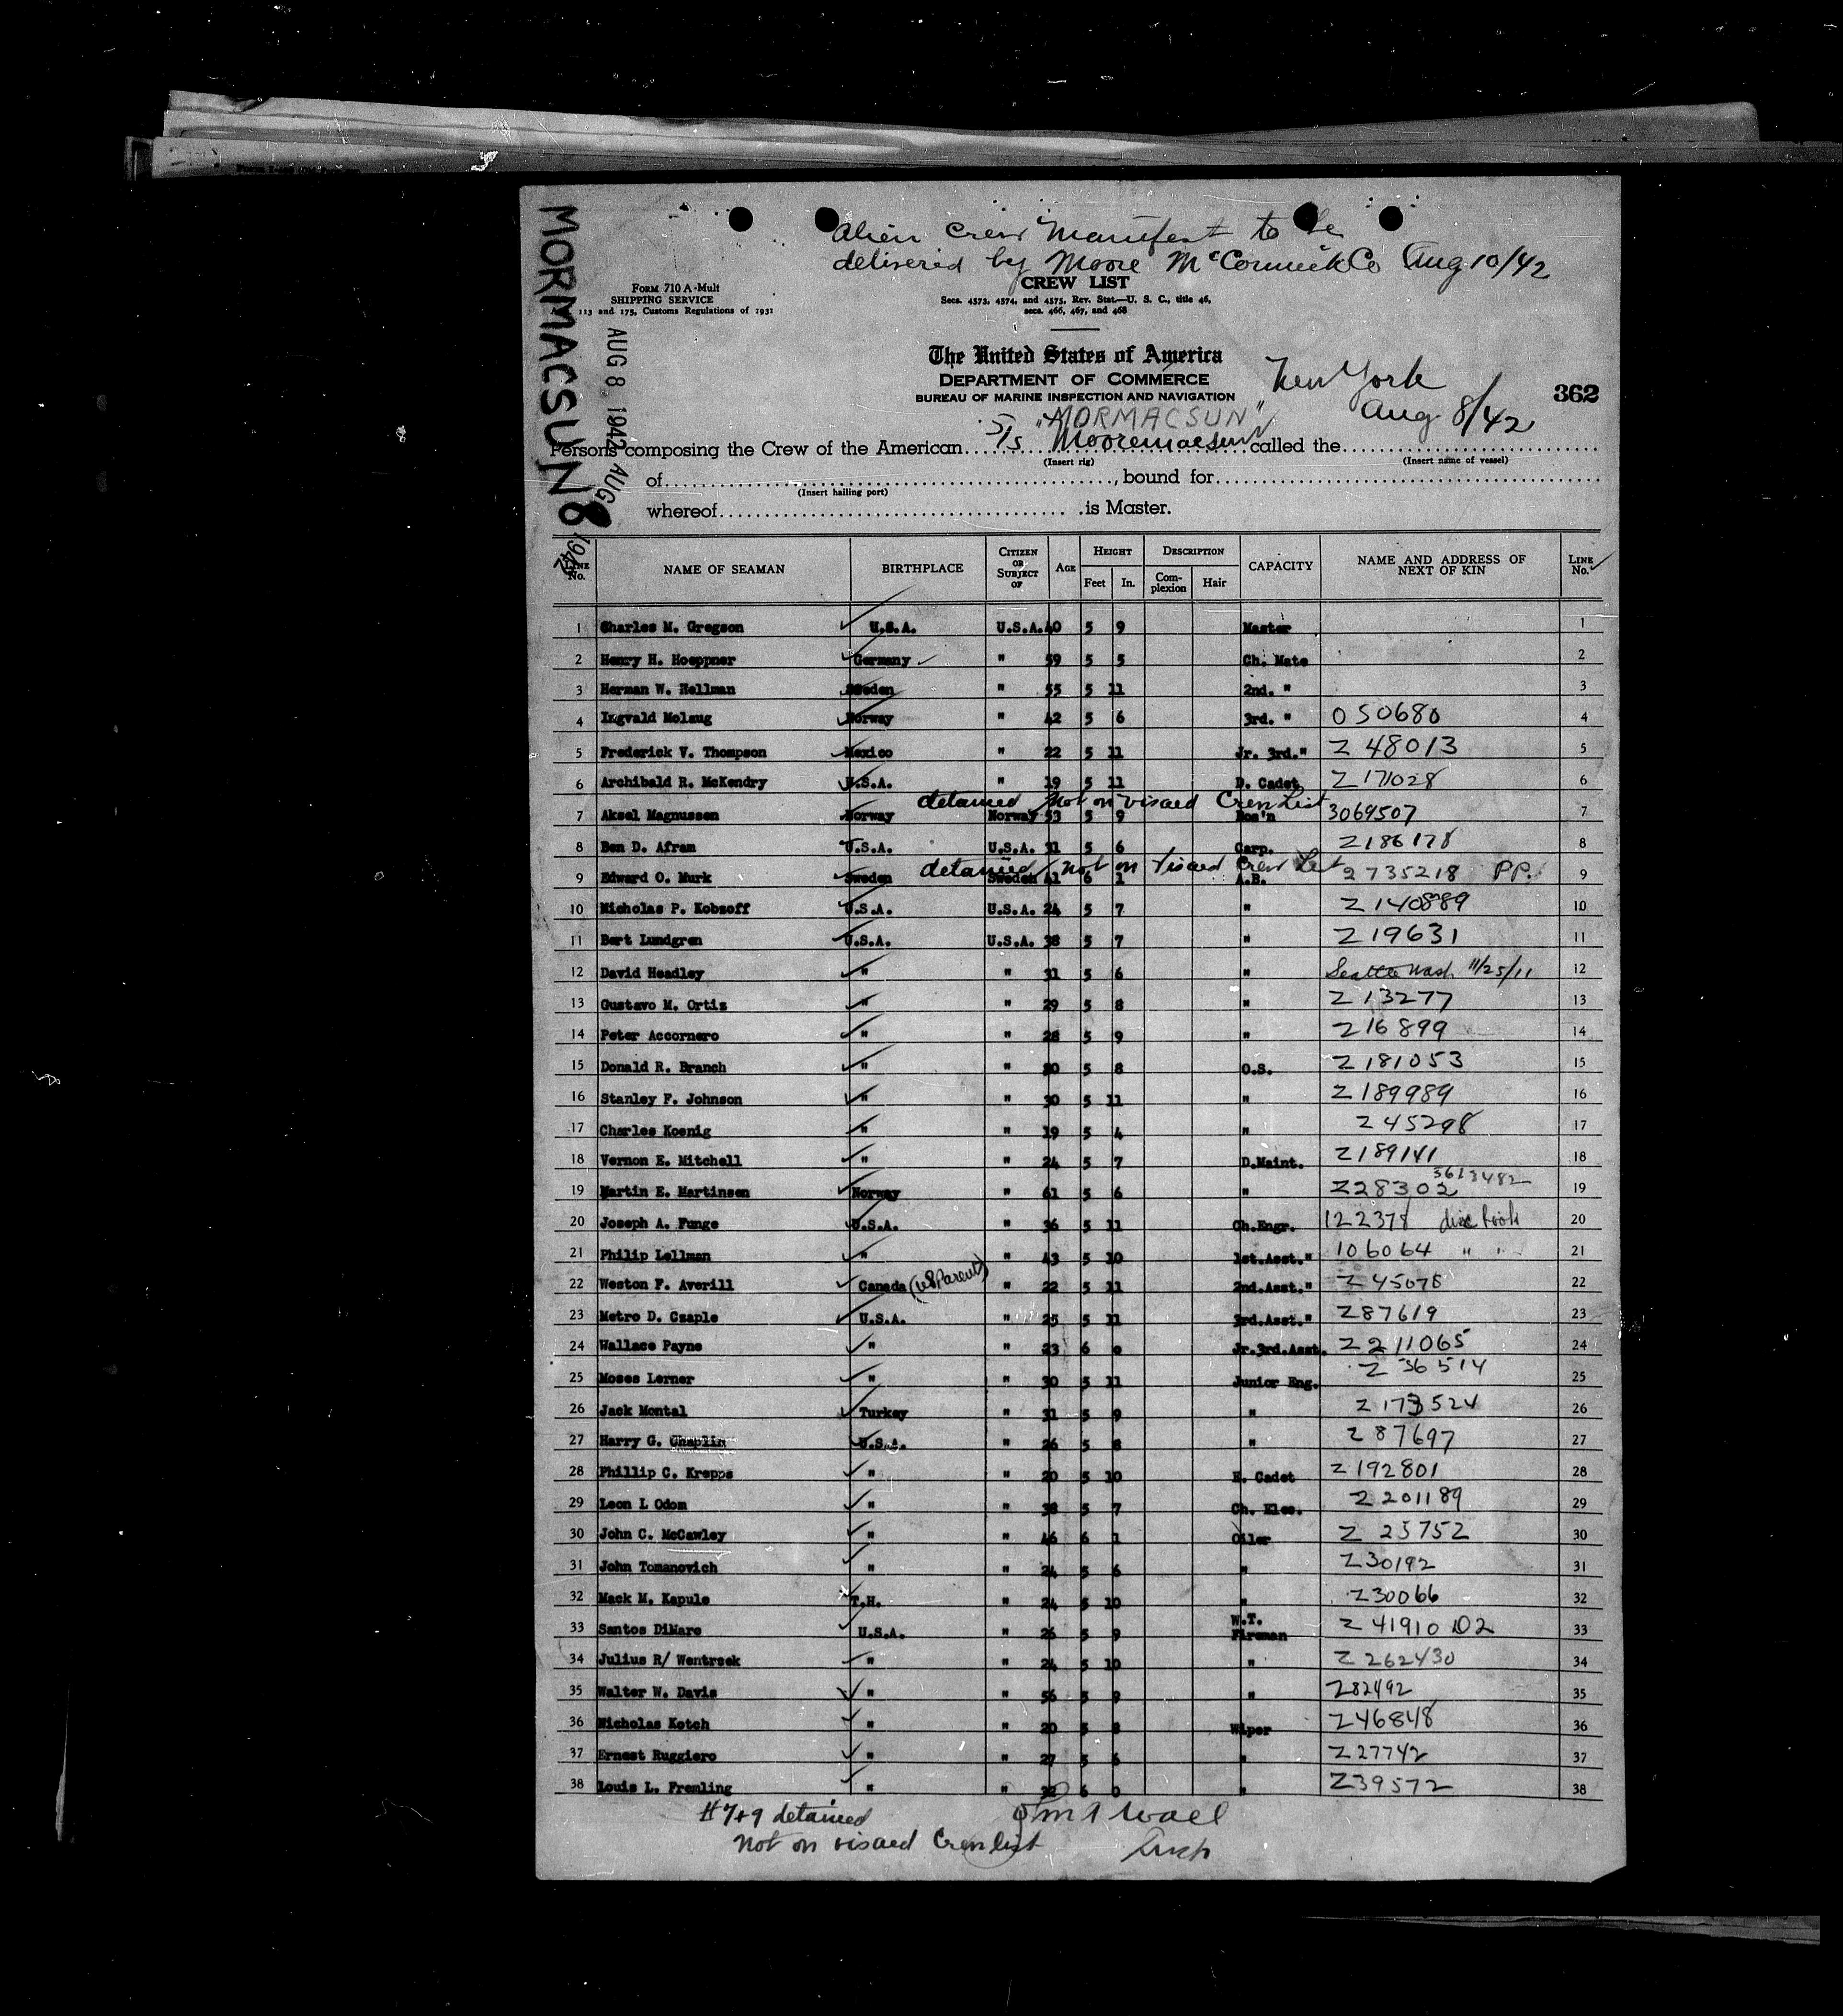 MORMACSUN
AUG 8 1942
AUG 8 1942
Alien Crew Manifest to be
delivered by Moore McCormick Co Aug 10/42
CREW LIST
FORM 710 A-Mult
SHIPPING SERVICE
113 and 175, Customs Regulations of 1931
Secs. 4573, 4574, and 4575, Rev. Stat.—U. S. C., title 46,
secs. 466, 467, and 468
The United States of America
DEPARTMENT OF COMMERCE
BUREAU OF MARINE INSPECTION AND NAVIGATION
New York
Aug 8/42
362
"MORMACSUN"
Persons composing the Crew of the American S/s Mooremacsun called the
(Insert rig) (Insert name of vessel)
of, bound for
(Insert hailing port)
whereof is Master.
LINE No. NAME OF SEAMAN BIRTHPLACE CITIZEN OR SUBJECT OF AGE HEIGHT Feet In. DESCRIPTION Complexion Hair CAPACITY NAME AND ADDRESS OF NEXT OF KIN LINE No.
1 Charles M. Gregson U.S.A. U.S.A. 40 5 9 Master 1
2 Henry H. Hoeppner Germany " 59 5 5 Ch. Mate 2
3 Herman W. Hellman Sweden " 55 5 11 2nd. " 3
4 Ingvald Molaug Norway " 42 5 6 3rd. " 050680 4
5 Frederick V. Thompson Mexico " 22 5 11 Jr. 3rd." Z 48013 5
6 Archibald R. McKendry U.S.A. " 19 5 11 D. Cadet Z171028 6
detained not on visaed Crew List
7 Aksel Magnussen Norway Norway 53 5 9 Bos'n 3069507 7
8 Ben D. Afram U.S.A. U.S.A. 31 5 6 Carp. Z186178 8
detained not on visaed Crew List
9 Edward O. Murk Sweden Sweden 41 6 1 A.B. 2735218 PP. 9
10 Nicholas P. Kobzoff U.S.A. U.S.A. 24 5 7 " Z140889 10
11 Bert Lundgren U.S.A. U.S.A. 38 5 7 " Z19631 11
12 David Headley " " 31 5 6 " Seattle Wash 11/25/11 12
13 Gustavo M. Ortiz " " 29 5 8 " Z13277 13
14 Peter Accornero " " 28 5 9 " Z16899 14
15 Donald R. Branch " " 20 5 8 O.S. Z181053 15
16 Stanley F. Johnson " " 30 5 11 " Z189989 16
17 Charles Koenig " " 19 5 4 " Z45298 17
18 Vernon E. Mitchell " " 24 5 7 D.Maint. Z189141 18
3613482
19 Martin E. Martinsen Norway " 61 5 6 " Z28302 19
20 Joseph A. Funge U.S.A. " 36 5 11 Ch.Engr. 122378 disc book 20
21 Philip Lellman " " 43 5 10 1st.Asst." 106064 " " 21
22 Weston F. Averill Canada (US Parent) " 22 5 11 2nd.Asst." Z45078 22
23 Metro D. Czaple U.S.A. " 25 5 11 3rd.Asst." Z87619 23
24 Wallace Payne " " 23 6 0 Jr.3rd.Asst. Z211065 24
25 Moses Lerner " " 30 5 11 Junior Eng. Z36514 25
26 Jack Montal Turkey " 31 5 9 " Z173524 26
27 Harry G. Chaplin U.S.A. " 26 5 8 " Z87697 27
28 Phillip C. Krepps " " 20 5 10 E. Cadet Z192801 28
29 Leon L Odom " " 38 5 7 Ch. Elec. Z201189 29
30 John C. McCawley " " 46 6 1 Oiler Z 25752 30
31 John Tomanovich " " 24 5 6 " Z30192 31
32 Mack M. Kapule T.H. " 24 5 10 " Z30066 32
33 Santos DiMare U.S.A. " 26 5 9 W.T. Fireman Z 41910 D2 33
34 Julius R/ Wentrzek " " 24 5 10 " Z262430 34
35 Walter W. Davis " " 56 5 9 " Z82492 35
36 Nicholas Kotch " " 20 5 8 Wiper Z46848 36
37 Ernest Ruggiero " " 27 5 6 " Z27742 37
38 Louis L. Fremling " " 32 6 0 " Z39572 38
#7+9 detained
not on visaed Crew list
Insp